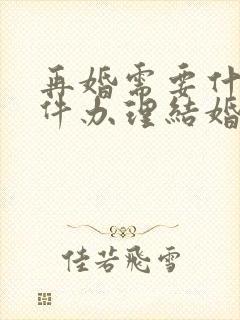 再婚需要什
件办理結婚
佳若飛雪